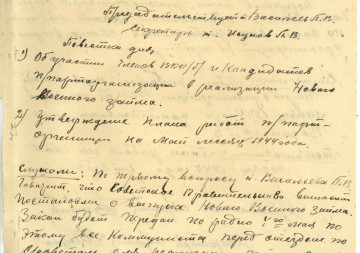 Председательствует Васильев П.В.
Секретарь т. П.В.
Повестка дня.
1) Об участии членов ВКП/б/ и кандидатов
п/парторганизации в реализации Нового
Военного займа.
2) Утверждение плана работ п/парт
организации на май месяц 1944 года.
Слушали: По первому вопросу т. Васильева П.В.
Говорит, что Советское Правительство
Постановило о выпуске Нового Военного Займа.
Заем будет передан по радио мая по
этому все Коммунисты перед отъездом по